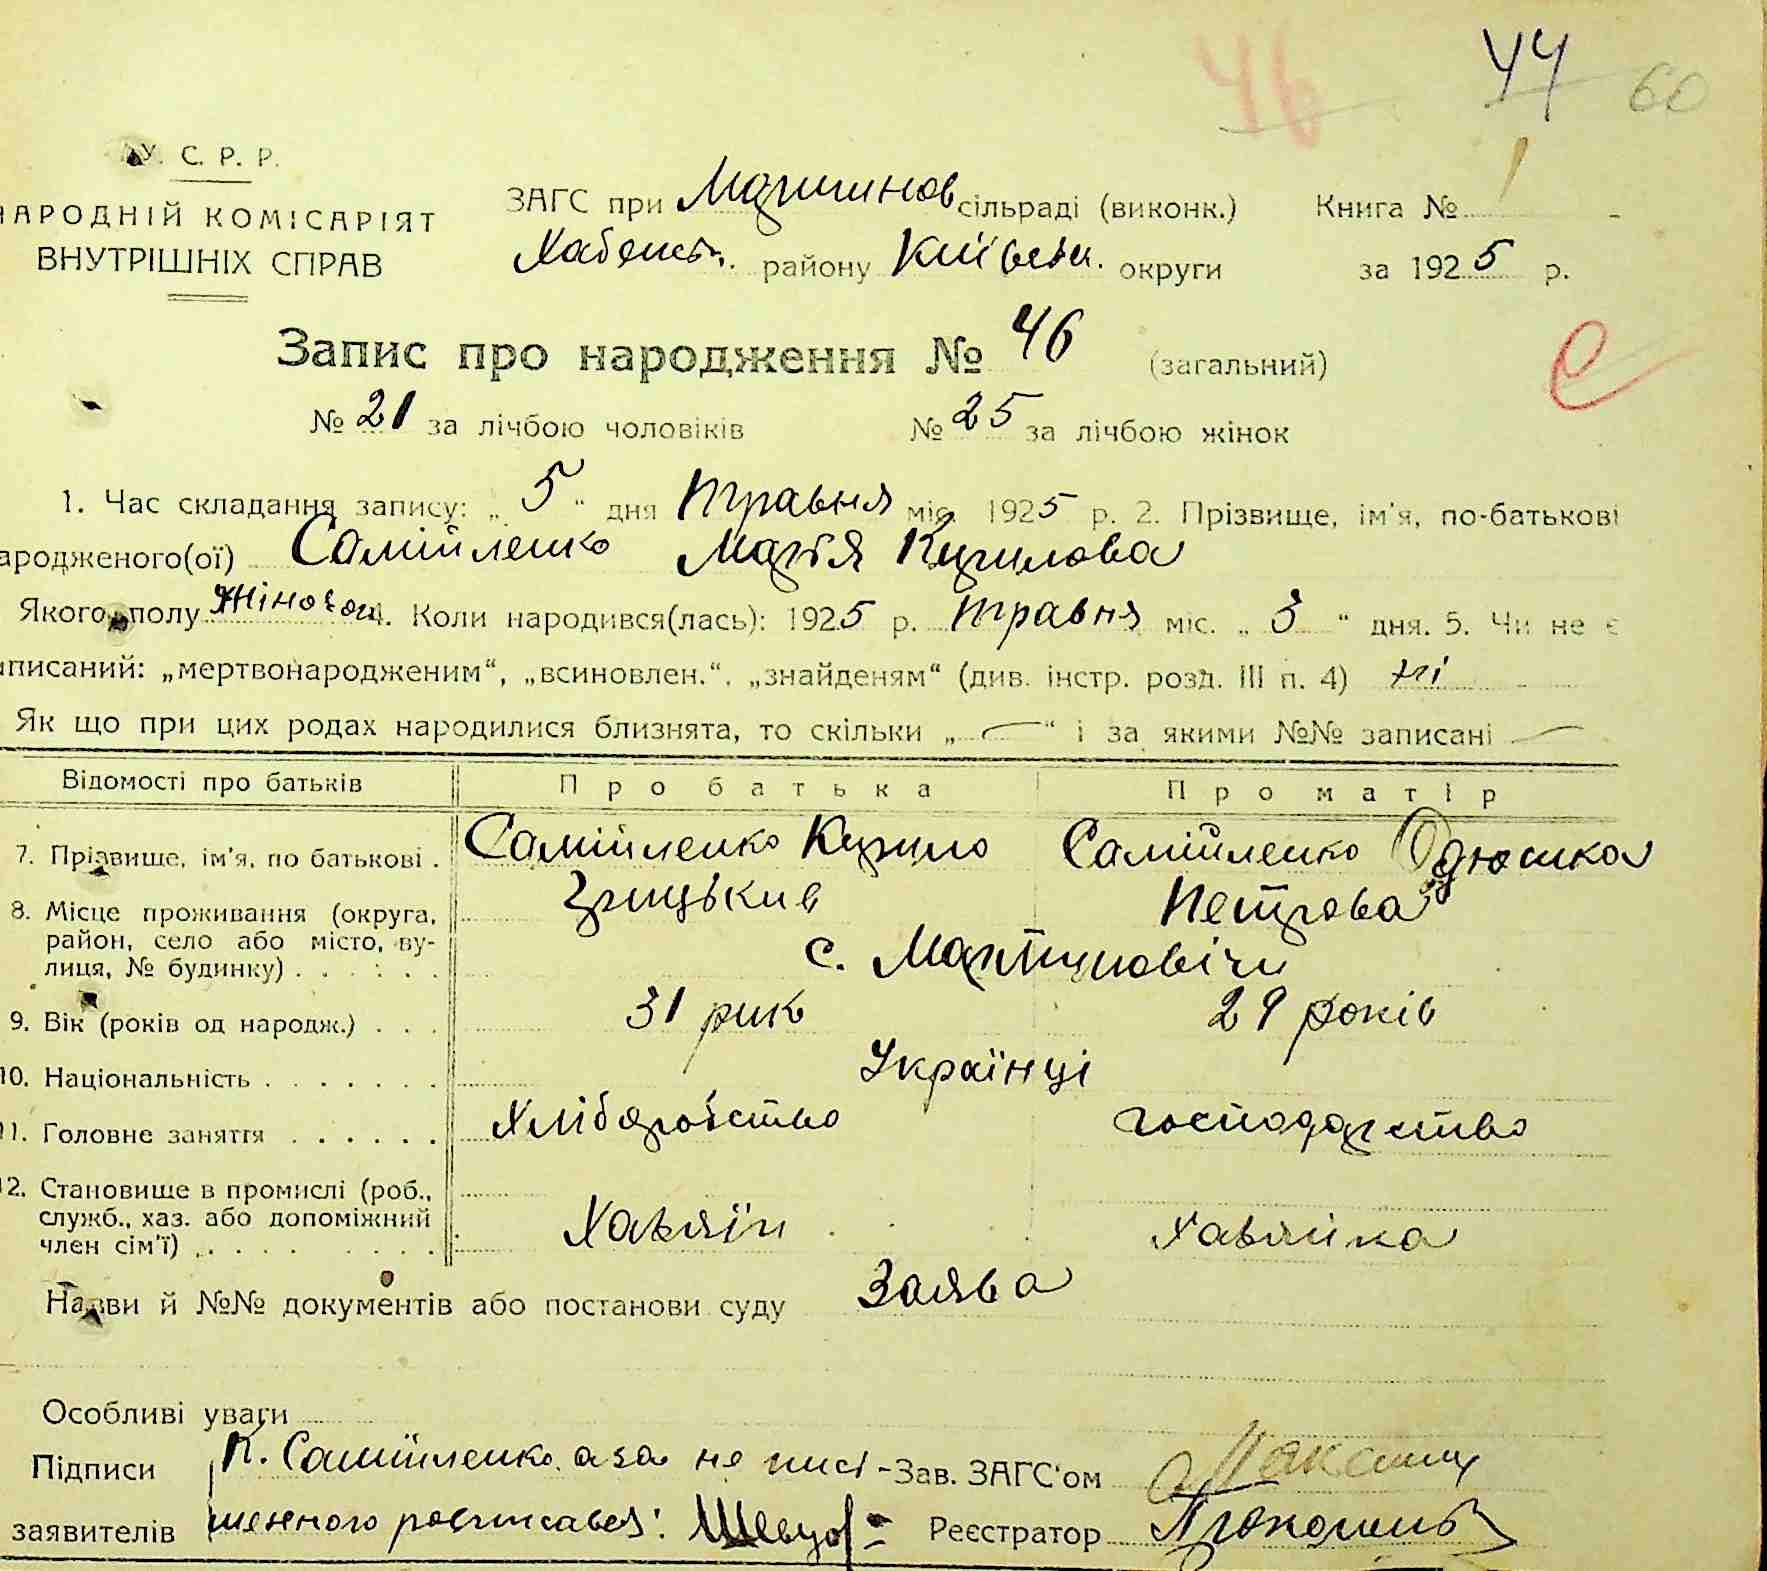 46 44 60
У. С. Р. Р.
НАРОДНІЙ КОМІСАРІЯТ
ВНУТРІШНІХ СПРАВ
ЗАГС при Мартинов сільраді (виконк.) Книга № 1
Хабенськ. району Київськ. округи за 1925 р.
Запис про народження № 46 (загальний)
№ 21 за лічбою чоловіків № 25 за лічбою жінок
1. Час складання запису: „ 5 “ дня травня міс. 1925 р. 2. Прізвище, ім'я, по-батькові
ародженого(ої) Самійленко Марія Кирилова
Якого полу жіночої 4. Коли народився(лась): 1925 р. травня міс. „ 3 “ дня. 5. Чи не є
аписаний: „мертвонародженим“, „всиновлен.“, „знайденям“ (див. інстр. розд. III п. 4) ні
Як що при цих родах народилися близнята, то скільки „ — “ і за якими №№ записані —
Відомості про батьків Про батька Про матір
7. Прізвище, ім'я, по батькові . Самійленко Кирило Самійленко Одюшка
Грицьків Петрова
8. Місце проживання (округа, район, село або місто, вулиця, № будинку) . . . . . . с. Мартиновічи
9. Вік (років од народж.) . . . 31 рик 29 років
10. Національність . . . . . . . Українці
11. Головне заняття . . . . . . Хлібороство господарство
12. Становище в промислі (роб., служб., хаз. або допоміжний член сім'ї) . . . . Хазяїн Хазяйка
Назви й №№ документів або постанови суду Заява
Особливі уваги
Підписи К. Самійленко. а за не писі - Зав. ЗАГС'ом
заявителів менного росписавсь: Швец Реєстратор